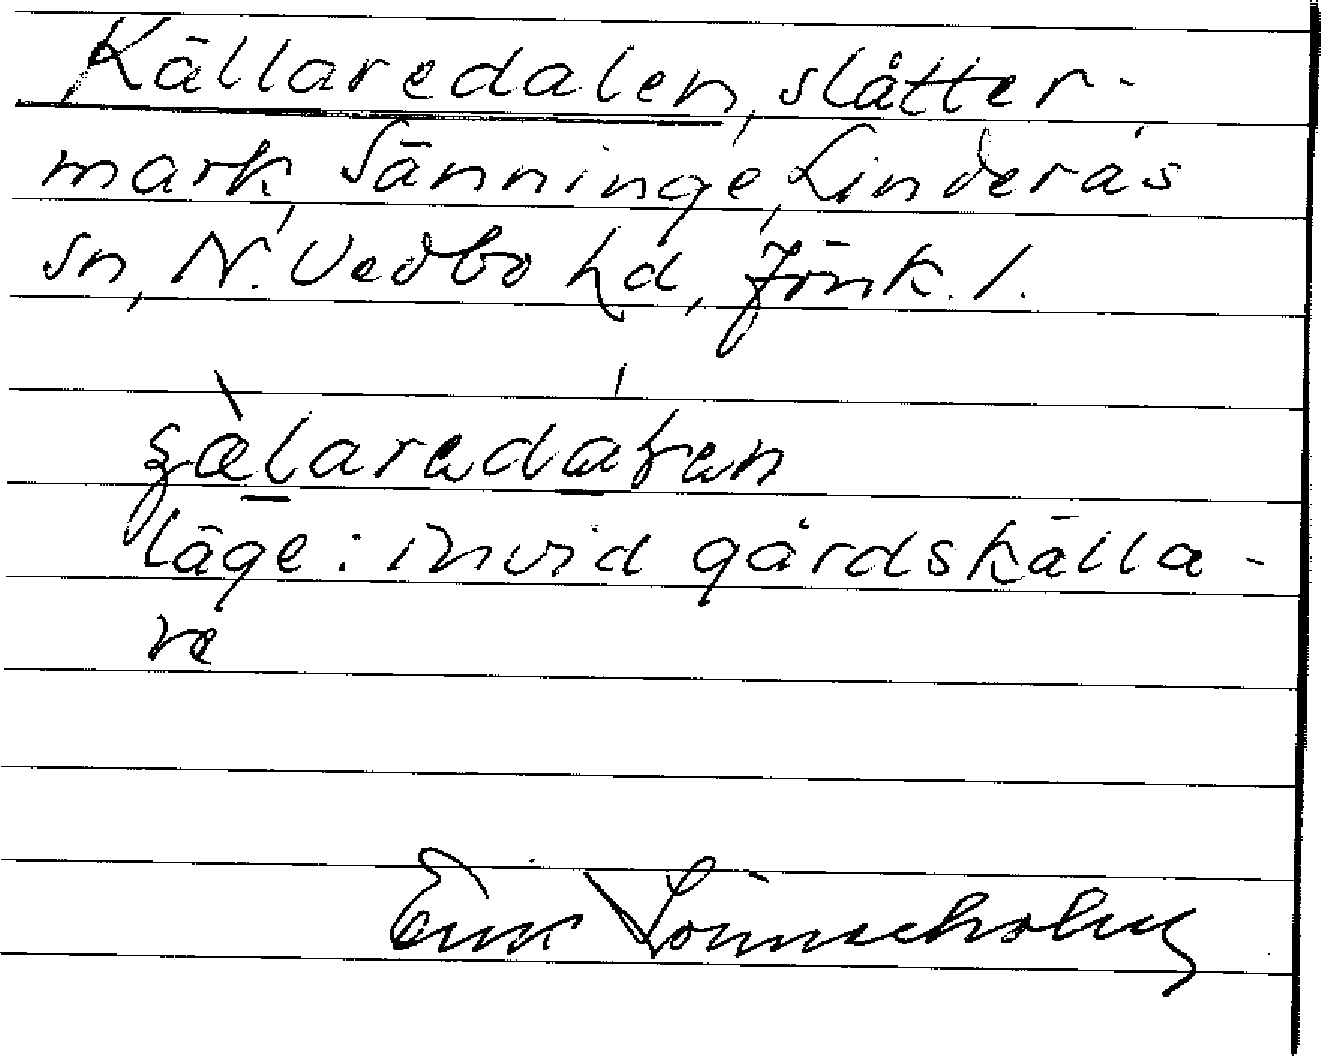 Källaredalen, slåtter-
mark, Sänninge, Linderås
sn, N. Vedbo hd, Jönk. l.
läge: invid gårdskälla-
re
Erik Lönnerholm